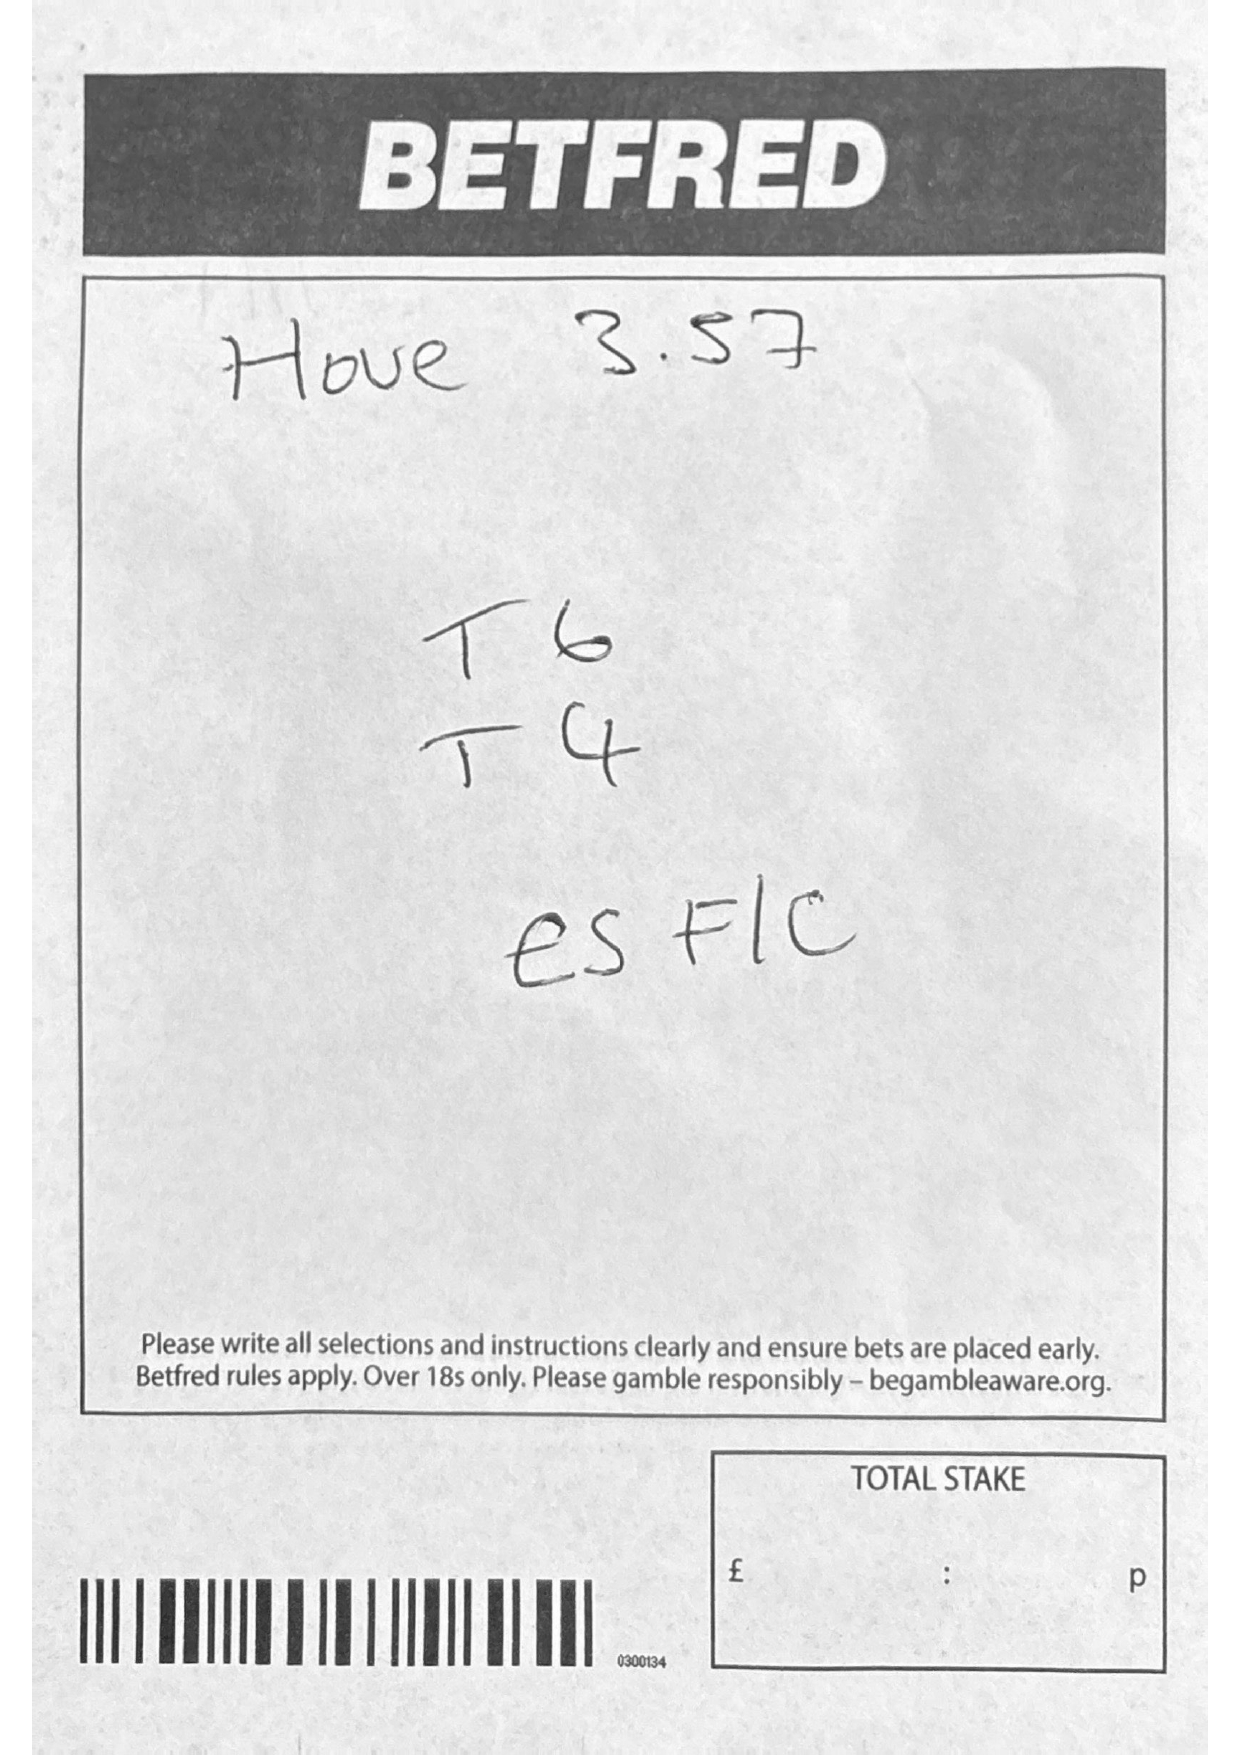 BETFRED
Hove 3.57
T 6
T 4
es F/C
Please write all selections and instructions clearly and ensure bets are placed early.
Betfred rules apply. Over 18s only. Please gamble responsibly – begambleaware.org.
TOTAL STAKE
£ : p
0300134